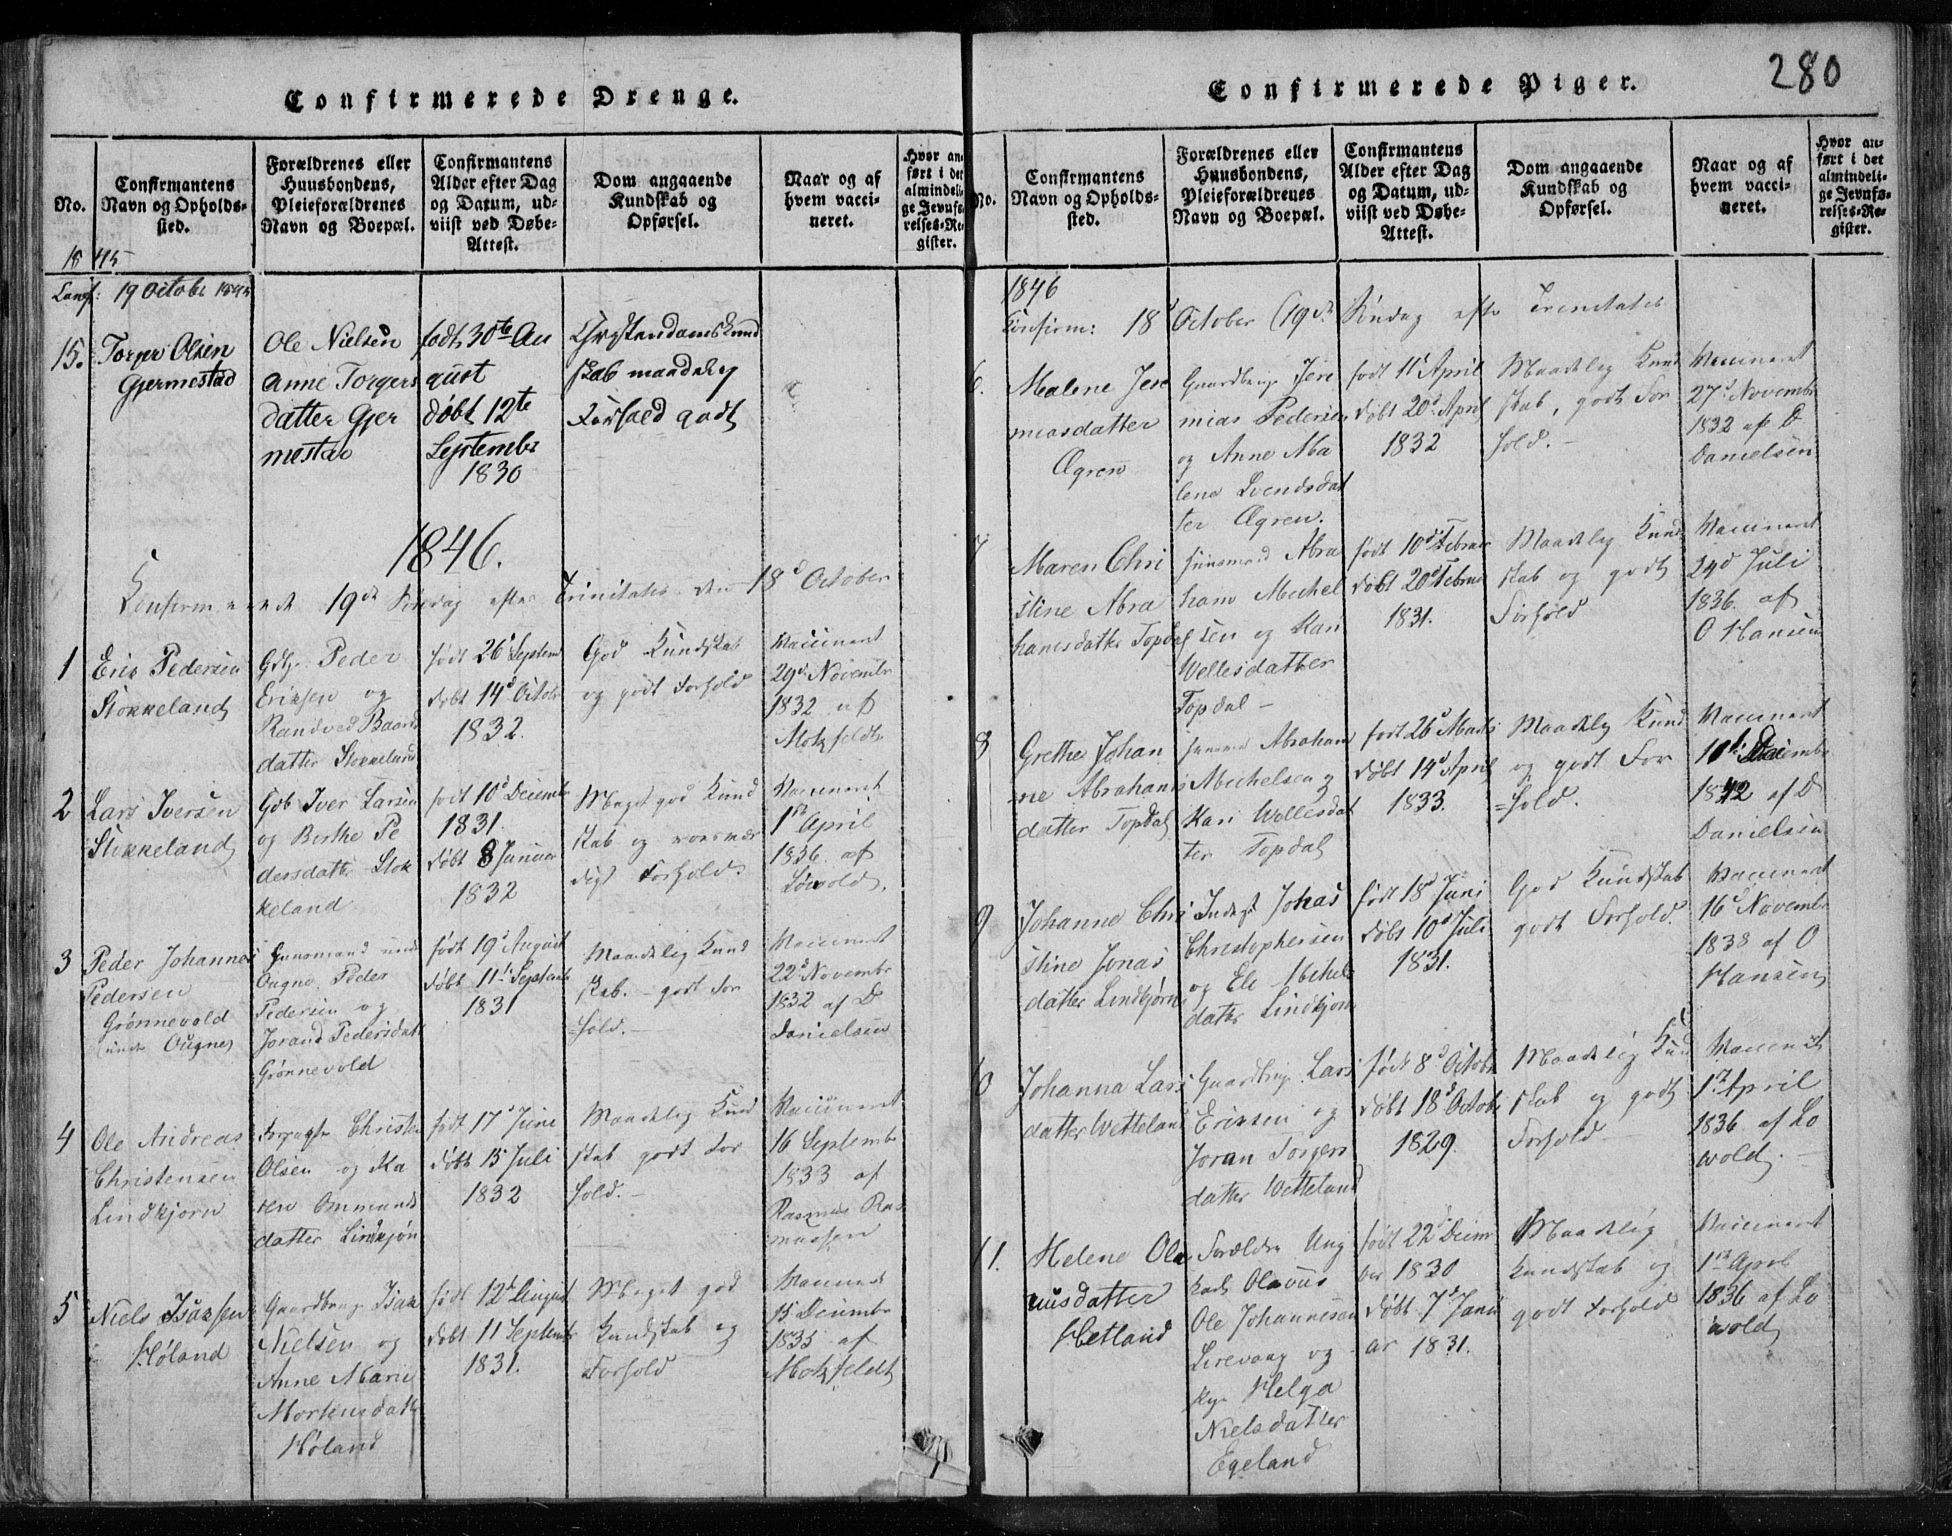 Confirmerede Drenge.
No.
Confirmantens
Navn og Opholds-
sted.
Forældrenes eller
Huusbondens,
Pleieforældrenes
Navn og Boepæl.
Confirmantens
Alder efter Dag
og Datum, ud-
viist ved Døbe-
Attest.
Dom angaaende
Kundskab og
Opførsel.
Naar og af
hvem vacci-
neret.
Hvor an-
ført i det
almindeli-
ge Jevnfø-
relses-Re-
gister.
1845
Conf: 19 October 1845
15.
Torger Olsen
Gjermestad
Ole Nielsen
Anne Torgers
datter Gjer
mestad
født 30te Au
gust
døbt 12te
Septembr
1830
Christendomskund
skab maadelig
Forhold godt
1846.
Confirmerede 19de Søndag efter Trinitatis den 18d October
1
Eric Pedersen
Stokkeland
Peder
Eriksen og
Randved Baards
datter Stokkeland
født 26d Septem
døbt 14d Octobr
1832.
God Kundskab
og godt Forhold
Vaccineret
29d Novembr
1832 af
Motzfeldt
2
Lars Iversen
Stokkeland
Gdb Iver Larsen
og Berthe Pe
dersdatter Stok
keland
født 10d Decembr
1831.
døbt 8 Januar
1832
Meget god Kund
skab og roesvær
digt Forhold.
Vaccineret
1ste April
1836 af
Løwold.
3
Peder Johannes
Pedersen
Grønnevold
under Ougne
Huusmand under
Ougne Peder
Pedersen og
Jorand Pedersdat
Grønnevold
født 19d August
døbt 11te Septembr
1831
Maadelig Kund
skab. - godt For
=hold. -
Vaccineret
22d Novembr
1832 af D
Danielsen
4
Ole Andreas
Christensen
Lindkjørn
Christen
Olsen og Ka
ren Ommunds
datter Lindkjøn
født 17d Juni
døbt 15 Juli
1832
Maadelig Kund
skab godt For
hold. -
Vaccineret
16 Septembr
1833 af
Rasmus Ras
mussen
5
Niels Isaksen
Høland
Gaardbrug Isak
Nielsen og
Anne Marie
Mortensdatter
Høland
født 12d August
døbt 11 Septembr
1831.
Meget god
Kundskab og
Forhold
Vaccineret
15 Decembr
1835 af
Motzfeldt
280
Confirmerede Piger.
No.
Confirmantens
Navn og Opholds-
sted.
Forældrenes eller
Huusbondens,
Pleieforældrenes
Navn og Boepæl.
Confirmantens
Alder efter Dag
og Datum, ud-
viist ved Døbe-
Attest.
Dom angaaende
Kundskab og
Opførsel.
Naar og af
hvem vacci-
neret.
Hvor an-
ført i det
almindeli-
ge Jevnfø-
relses-Re-
gister.
1846
Confirm: 18d October (19de Søndag efter Trinitatis
6.
Malene Jere
miasdatter
Øgren
Gaardbrug Jere
mias Pedersen
og Anne Ma
lene Svendsdat
ter Øgren.
født 11d April
døbt 20d April
1832
Maadelig Kund
skab, godt For
hold. -
Vaccineret
27d Novembr
1832 af D
Danielsen
7
Maren Chri
stine Abra
hamsdatter Topdal
Huusmand Abra
ham Michel
sen og Kari
Wellesdatter
Topdal -
født 10d Februar
døbt 20d Februar
1831.
Maadelig Kund
skab og godt
Forhold
Vaccineret
24d Juli
1836. af
O Hansen
8
Grethe Johan
ne Abrahams
datter Topdal
Abraham
Michelsen og
Kari Wellesdat
ter Topdal
født 26d Marts
døbt 14d April
1833.
Maadelig Kund
og godt For
=hold.
Vaccineret
10d Decembr
1842 af D
Danielsen
9
Johanne Chri
stine Jonas
datter Lindkjørn
Inderst Johas
Christophersen
og Ele Michels
datter Lindkjørn
født 18d Juni
døbt 10d Juli
1831.
God Kundskab
godt Forhold.
Vaccineret
16d Novembr
1838 af O
Hansen
10
Johanna Lars
datter Vetteland
Gaardbrug. Lars
Ericksen og
Joran Torgers
datter Vetteland
født 8d Octobr
døbt 18d Octobr
1829.
Maadelig Kund
skab og godt
Forhold
Vaccineret
1ste April
1836 af Lo
wold. -
11.
Helene Ola
vusdatter
Hetland
Forældre Ung
karl Olavus
Ole Johannesen
Lirevaag og
Helga
Nielsdatter
Egeland
født 22d Decem
ber 1830
døbt 7d Janu
ar 1831.
Maadelig
Kundskab og
godt Forhold
Vaccineret
1ste April
1836 af Lo
wold